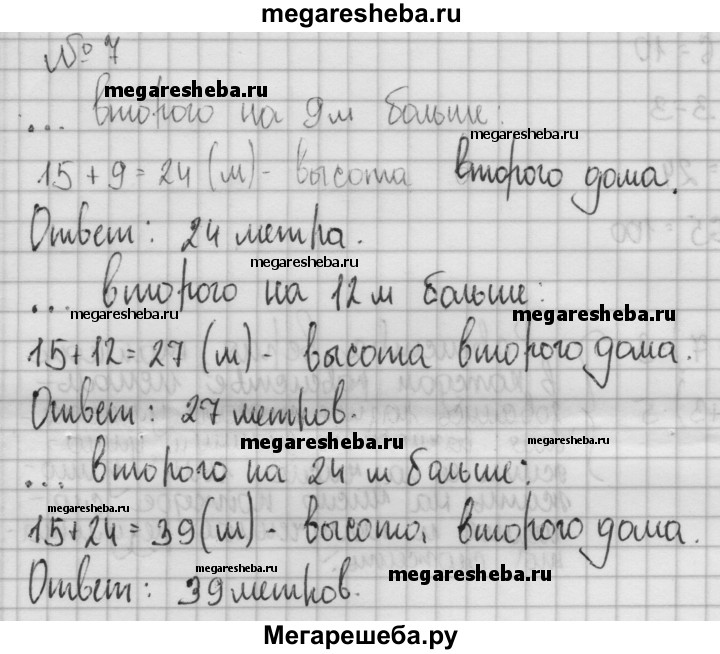 megaresheba.ru
№ 7
megaresheba.ru
... второго на 9м больше:
megaresheba.ru
15 + 9 = 24 (м) - высота второго дома.
megaresheba.ru
Ответ: 24 метра.
megaresheba.ru
... второго на 12 м больше:
megaresheba.ru
megaresheba.ru
15+12=27 (м) - высота второго дома.
Ответ: 27 метров.
megaresheba.ru
megaresheba.ru
... второго на 24 м больше:
megaresheba.ru
15+24=39(м) - высота второго дома.
Ответ: 39 метров.
megaresheba.ru
Мегарешеба.ру